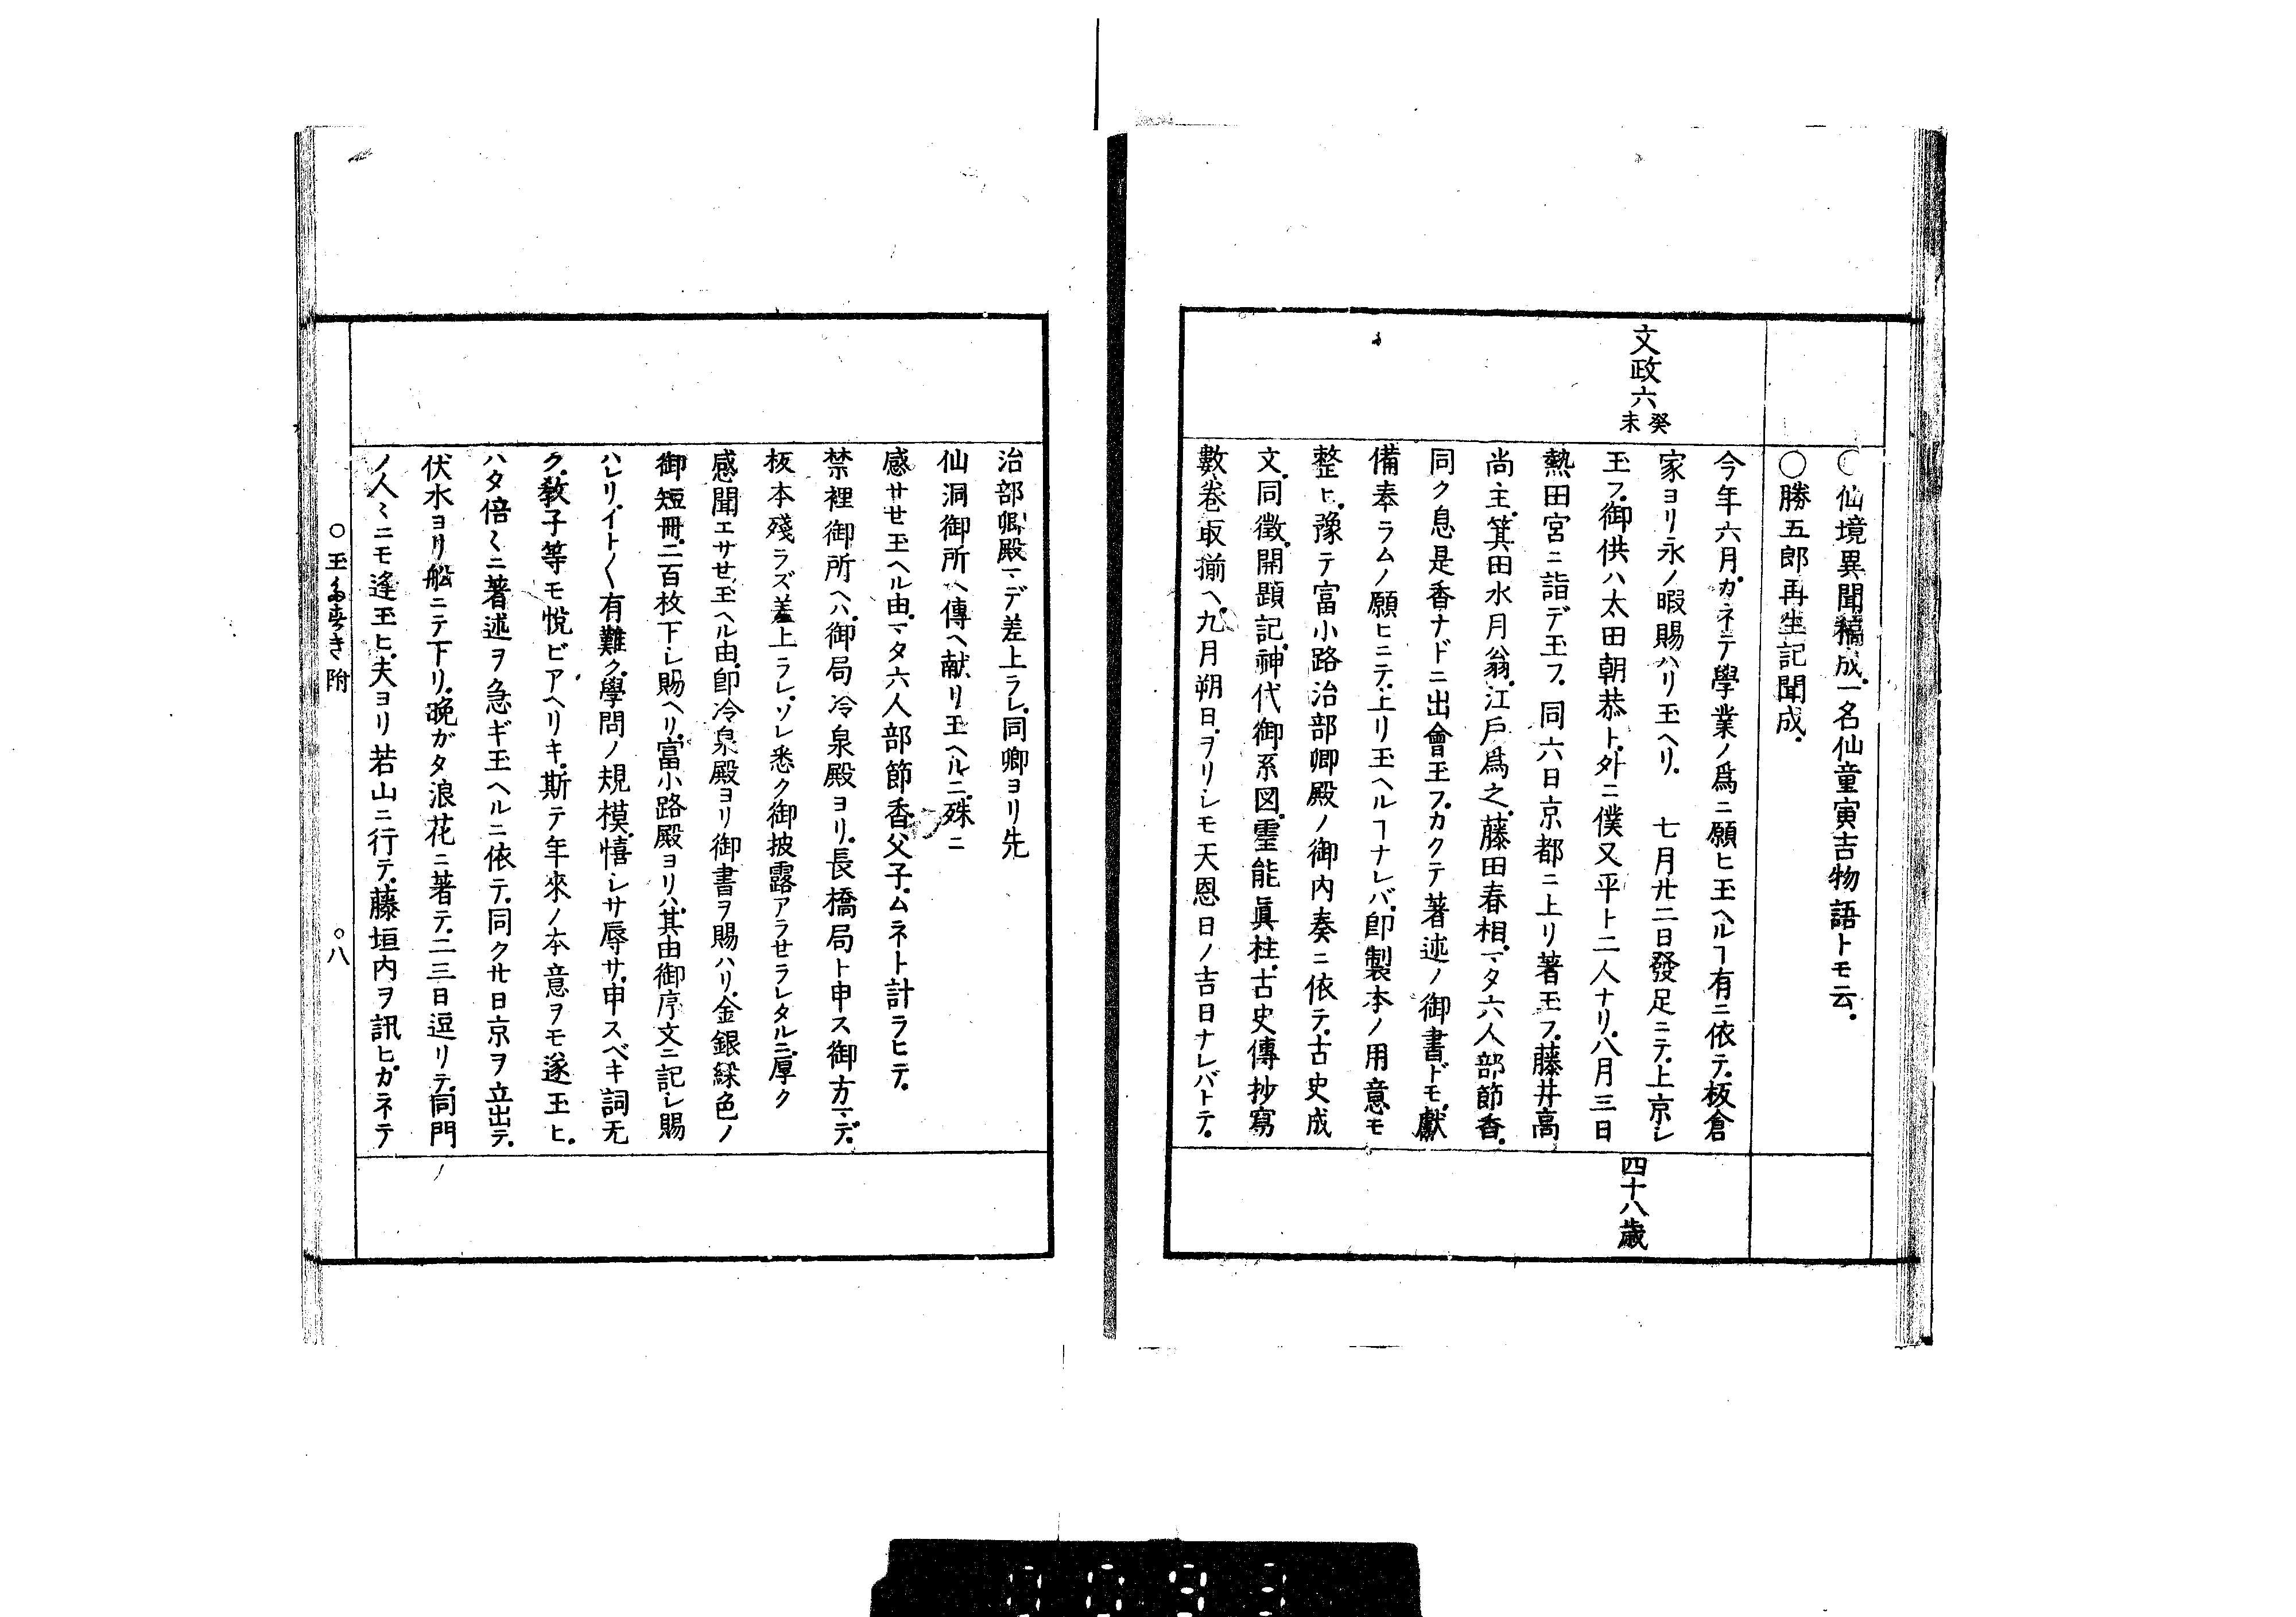 〇仙境異聞稿成。一名仙童寅吉物語トモ云。
〇勝五郎再生記聞成。
文政六癸未
今年六月。カネテ學業ノ爲ニ願ヒ玉ヘルヿ有ニ依テ。板倉
家ヨリ永ノ暇賜ハリ玉ヘリ。 七月廿二日發足ニテ。上京シ
玉フ。御供ハ太田朝恭ト。外ニ僕又平ト二人ナリ。八月三日
熱田宮ニ詣デ玉フ。同六日京都ニ上リ著玉フ。藤井高
尚主。箕田水月翁。江戸爲之。藤田春相。マタ六人部節香。
同ク息是香ナドニ出會玉フ。カクテ著述ノ御書ドモ。獻
備奉ラムノ願ヒニテ。上リ玉ヘルヿナレバ。卽製本ノ用意モ
整ヒ。豫テ富小路治部卿殿ノ御内奏ニ依テ。古史成
文。同徵。開題記。神代御系図。霊能眞柱。古史傳抄寫
數卷取揃ヘ。九月朔日。ヲリシモ天恩日ノ吉日ナレバトテ。
四十八歳
治部卿殿マデ差上ラレ。同卿ヨリ先
仙洞御所ヘ傳ヘ献リ玉ヘルニ。殊ニ
感サセ玉ヘル由。マタ六人部節香父子。ムネト計ラヒテ。
禁裡御所ヘハ。御局冷泉殿ヨリ。長橋局ト申ス御方マデ。
板本殘ラズ差上ラレ。ソレ悉ク御披露アラセラレタルニ。厚ク
感聞エサセ玉ヘル由。卽冷泉殿ヨリ御書ヲ賜ハリ。金銀綵色ノ
御短冊。二百枚下シ賜ヘリ。富小路殿ヨリハ。其由御序文ニ記シ賜
ハレリ。イト〱有難ク。學問ノ規模。憘シサ辱サ。申スベキ詞无
ク。敎子等モ悅ビアヘリキ。斯テ年來ノ本意ヲモ遂玉ヒ。
ハタ倍〻ニ著述ヲ急ギ玉ヘルニ依テ。同ク廿日京ヲ立出テ。
伏水ヨリ船ニテ下リ。晩ガタ浪花ニ著テ。二三日逗リテ。同門
ノ人〻ニモ逢玉ヒ。夫ヨリ若山ニ行テ。藤垣内ヲ訊ヒ。カネテ
〇玉多すき附 〇八